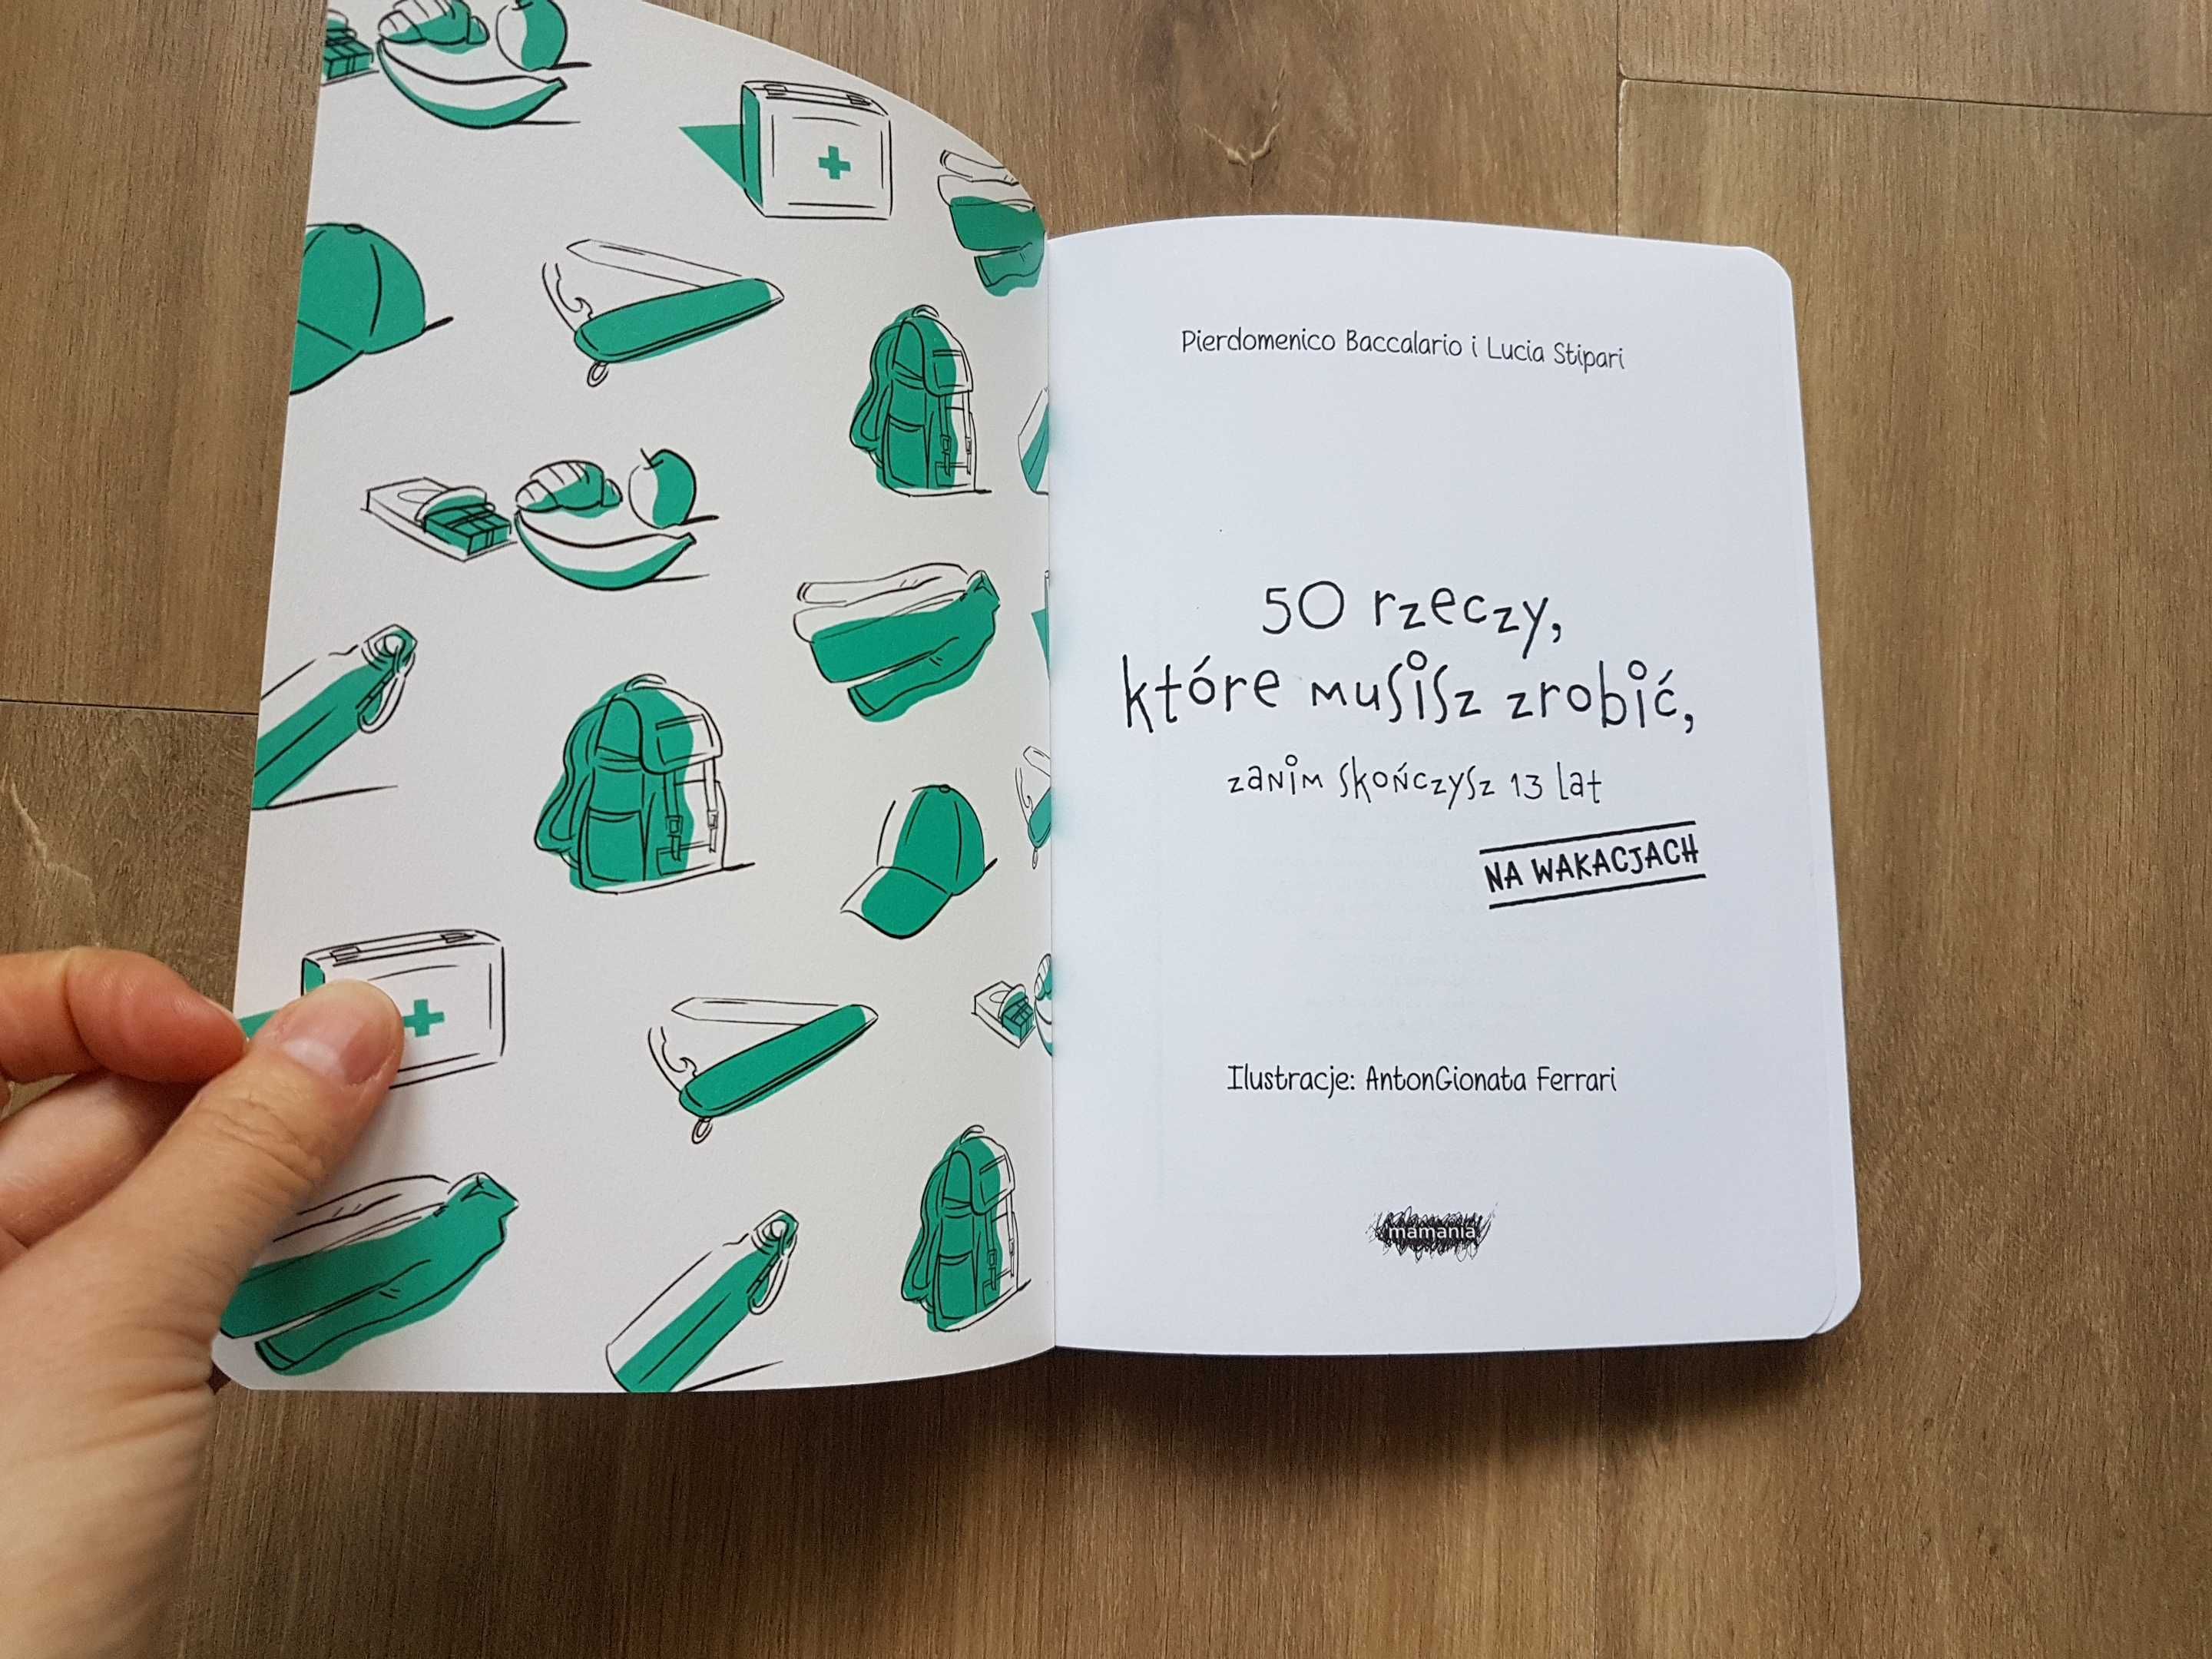 Pierdomenico Baccalario i Lucia Stipari
50 rzeczy,
które musisz zrobić,
zanim skończysz 13 lat
NA WAKACJACH
Ilustracje: AntonGionata Ferrari
mamania